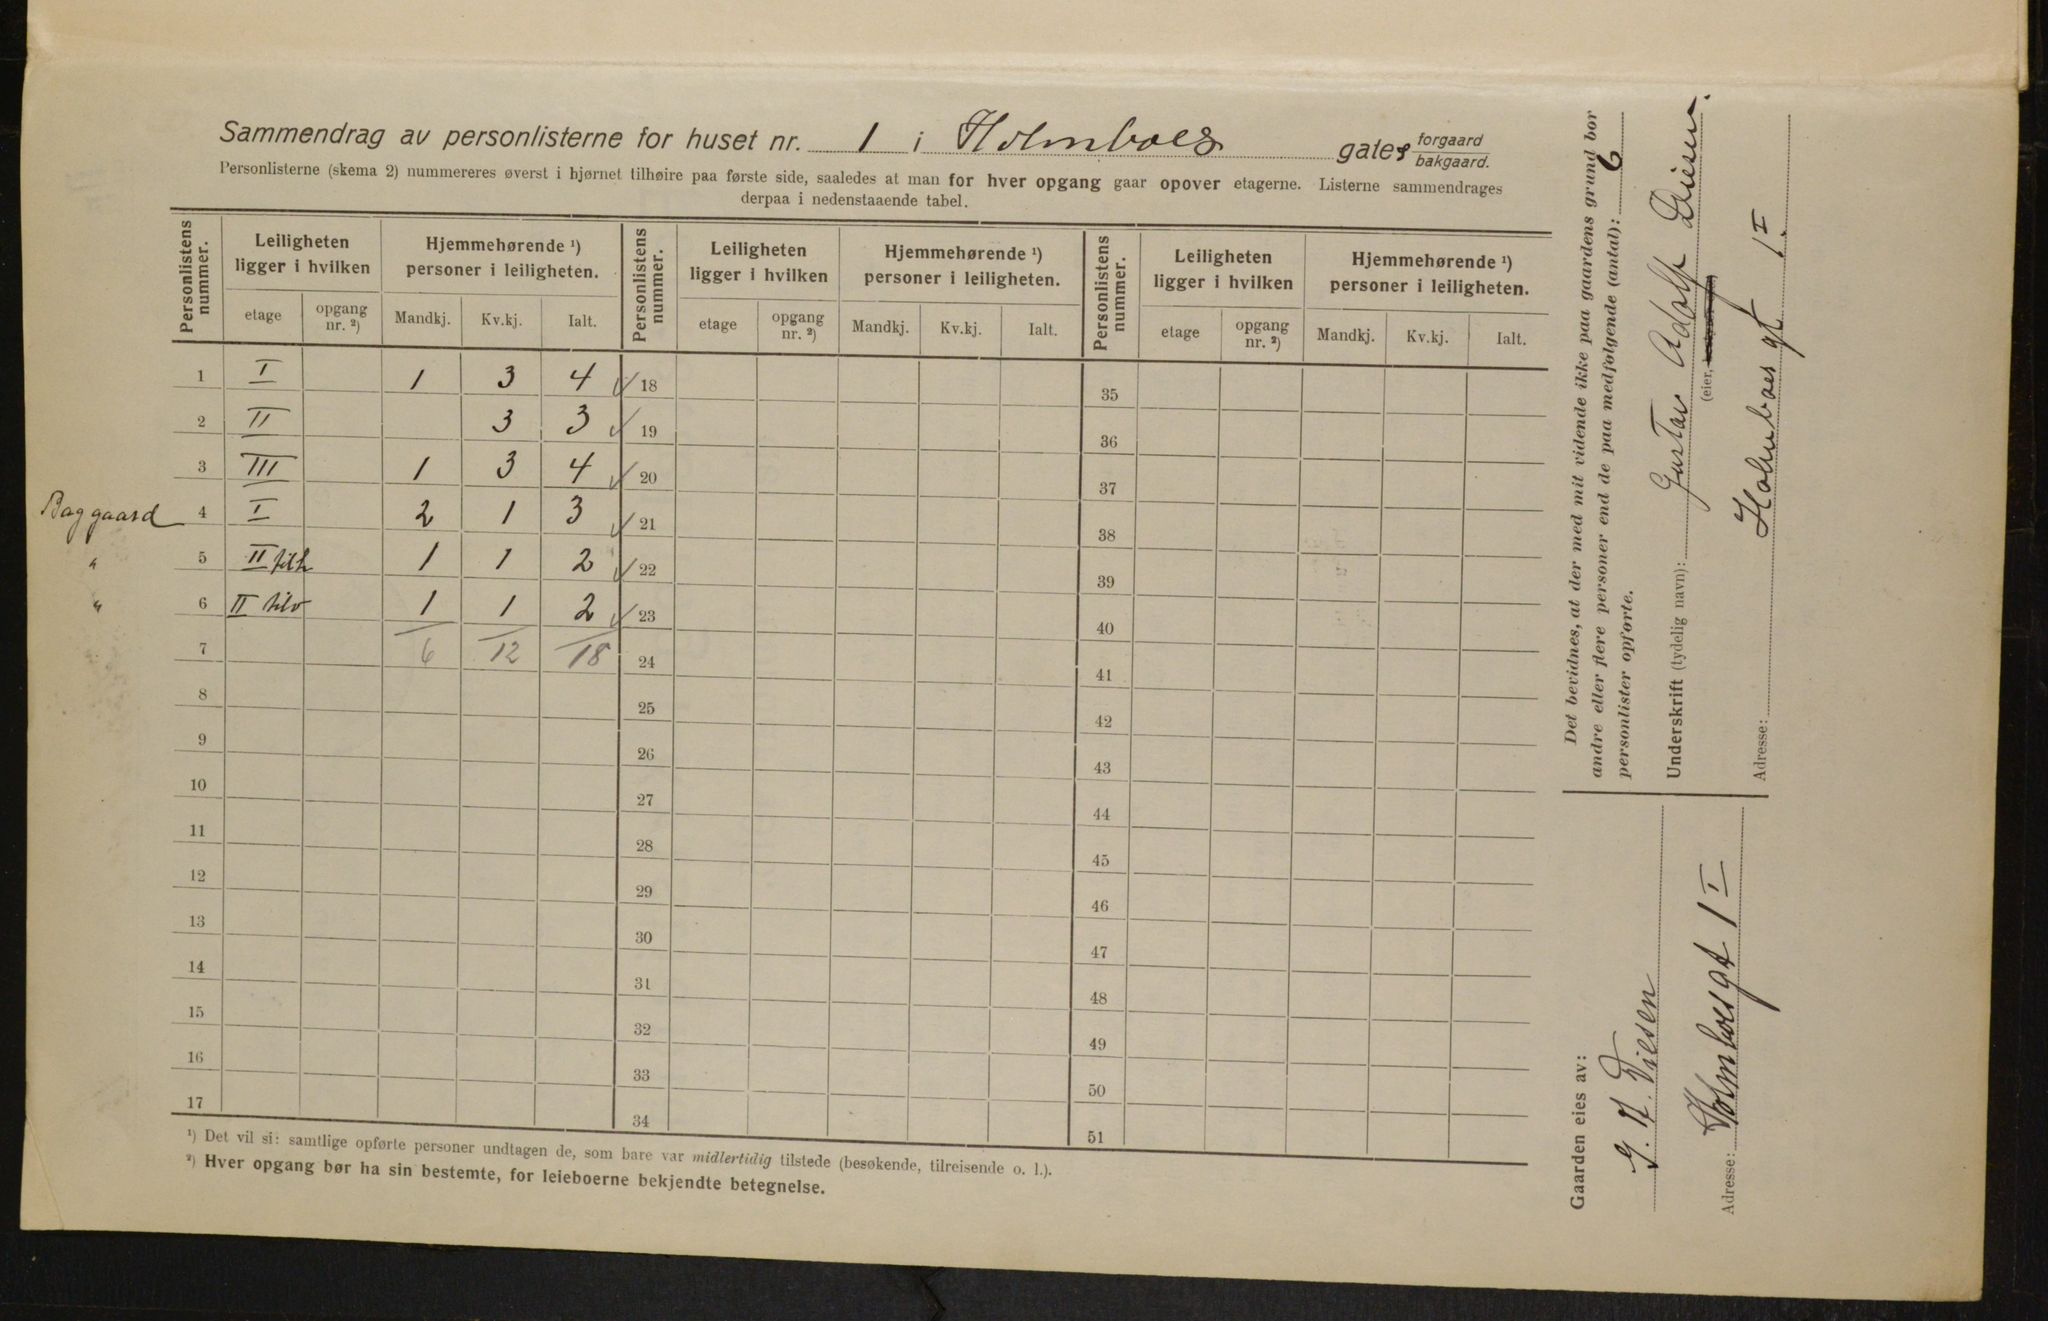 Sammendrag av personlisterne for huset nr. 1 i Holmboes gate forgaard bakgaard.
Personlisterne (skema 2) nummereres øverst i hjørnet tilhøire paa første side, saaledes at man for hver opgang gaar opover etagerne. Listerne sammendrages
derpaa i nedenstaaende tabel.
Personlistens nummer. Leiligheten ligger i hvilken Hjemmehørende ¹) personer i leiligheten. Personlistens nummer. Leiligheten ligger i hvilken Hjemmehørende ¹) personer i leiligheten. Personlistens nummer. Leiligheten ligger i hvilken Hjemmehørende ¹) personer i leiligheten.
etage opgang nr. ²) Mandkj. Kv.kj. Ialt. etage opgang nr. ²) Mandkj. Kv.kj. Ialt. etage opgang nr. ²) Mandkj. Kv.kj. Ialt.
1 I 1 3 4 ✓ 18 35
2 II 3 3 ✓ 19 36
3 III 1 3 4 ✓ 20 37
Baggaard 4 I 2 1 3 ✓ 21 38
" 5 II tilh 1 1 2 ✓ 22 39
" 6 II tilv 1 1 2 ✓ 23 40
7 6 12 18 24 41
8 25 42
9 26 43
10 27 44
11 28 45
12 29 46
13 30 47
14 31 48
15 32 49
16 33 50
17 34 51
¹) Det vil si: samtlige opførte personer undtagen de, som bare var midlertidig tilstede (besøkende, tilreisende o. l.).
²) Hver opgang bør ha sin bestemte, for leieboerne bekjendte betegnelse.
Det bevidnes, at der med mit vidende ikke paa gaardens grund bor
andre eller flere personer end de paa medfølgende (antal): 6
personlister opførte.
Underskrift (tydelig navn): Gustav Adolf
(eier,
Adresse: Holmboes gt 1 I.
Gaarden eies av:
G. A.
Adresse: Holmboesgt 1 I